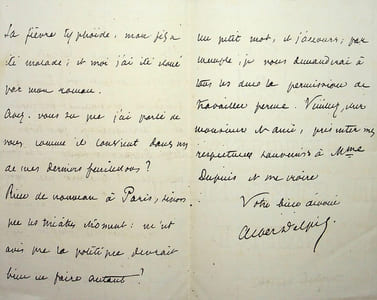 la fièvre typhoïde, mon fils a
été malade; et moi j'ai été cloué
par mon roman.
Avez-vous su que j'ai parlé de
vous comme il convient dans un
de mes derniers feuilletons?
Rien de nouveau à Paris, sinon
que les théâtres chôment: n'est
avis que la politique devrait
bien en faire autant?
un petit mot, et j'accours; par
exemple, je vous demanderai à
tous les deux la permission de
travailler ferme. Veuillez, cher
monsieur et ami, présenter mes
respectueux souvenirs à Mme
Dupuis et me croire
Votre bien dévoué
Albert Delpit